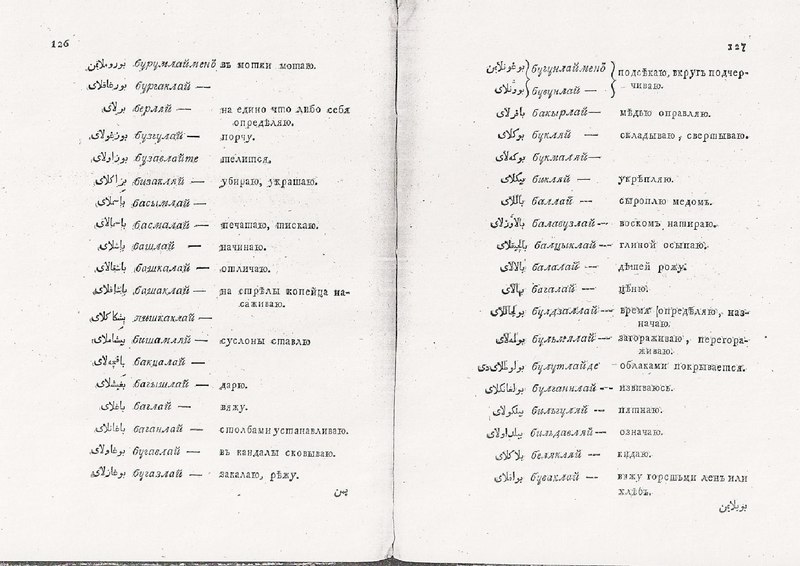 126
بوروملايمن бурумлаймен въ мотки мотаю.
بورغاقلاى бургаклай —
برلاى берляй — на едино что либо себя
опредѣляю.
بوزغولاى бузгулай — порчу.
بوزاولاى бузавлайте телится.
بزاكلاى бизакляй — убираю, украшаю.
باسملاى басымлай —
باسمالاى басмалай — печатаю, тискаю.
باشلاى башлай — начинаю.
باشقالاى башкалай — отличаю.
باشاقلاى башаклай — на стрѣлы копейца на-
саживаю.
پشكاكلاى пишкаклай —
بيشاملاى бишамляй — суслоны ставлю
باقچهلاى бакцалай —
بغيشلاى багышлай — дарю.
باغلاى баглай — вяжу.
باغانلاى баганлай — столбами устанавливаю.
بوغاولاى бугавлай — въ кандалы сковываю.
بوغازلاى бугазлай — закалаю, рѣжу.
يمن
127
بوغونلايمن бугунлаймен подсѣкаю, вкругъ подчер-
بوونلاى бувунлай — чиваю.
باقرلاى бакырлай — мѣдью оправляю.
بوكلاى букляй — складываю, свертываю.
بوكمهلاى букмаляй —
بيكلاى бикляй — укрѣпляю.
باللاى баллай — сыроплю медомъ.
بالاوزلاى балавузлай — воскомъ натираю.
بالچيقلاى балцыклай — глиной осыпаю.
بالالاى балалай — дѣтей рожу.
بهالاى багалай — цѣню.
بولجاللاى булдзаллай — время опредѣляю, наз-
начаю.
بولمهلاى бульмяллай — загораживаю, перегора-
живаю.
بولوطلاىدى булутлайде — облаками покрывается.
بولغانكلاى булганнлай — извиваюсь.
بيلكولاى бильгуляй — пятнаю.
بيلداولاى бильдавляй — означаю.
بلاكلاى белякляй — кидаю.
بواقلاى буваклай — вяжу горстьми ленъ или
хлѣбъ.
بوبلايمن